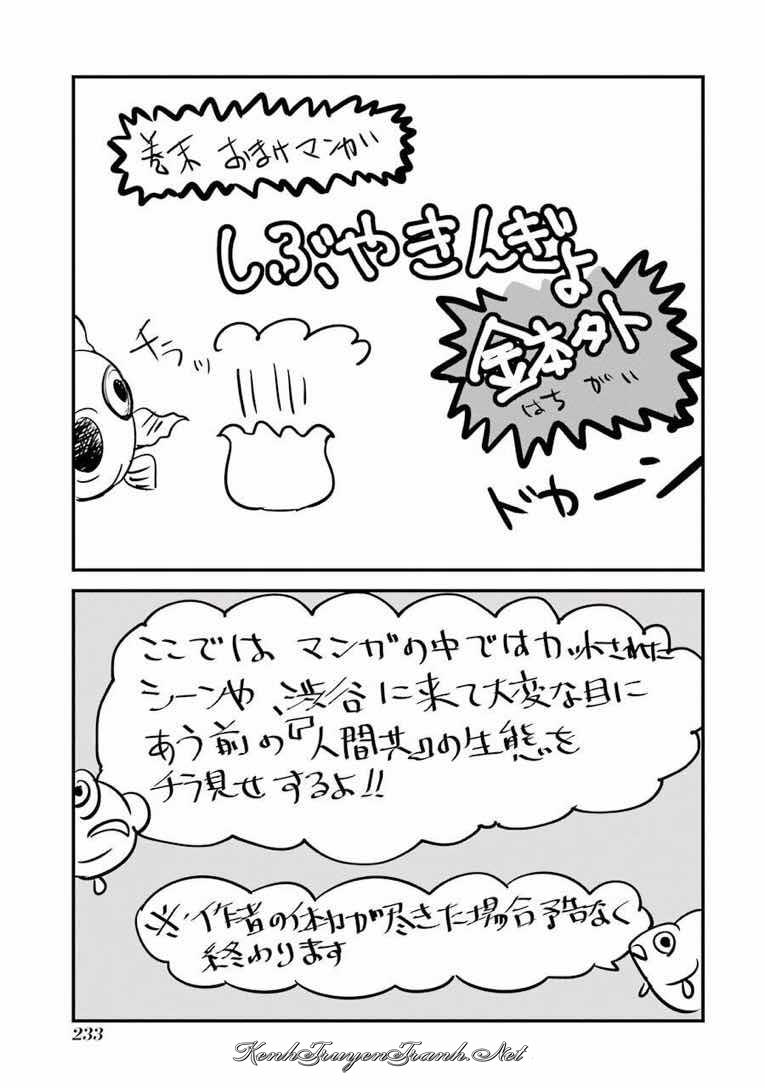 巻末 おまけマンガ
しぶやきんぎょ
番外
はちがい
チラッ
ドカーン
ここでは、マンガの中ではカットされた
シーンや、渋谷に来て大変な目に
あう前の『人間共』の生態を
チラ見せするよ!!
※作者の体力が尽きた場合予告なく
終わります
233
KenhTruyenTranh.Net